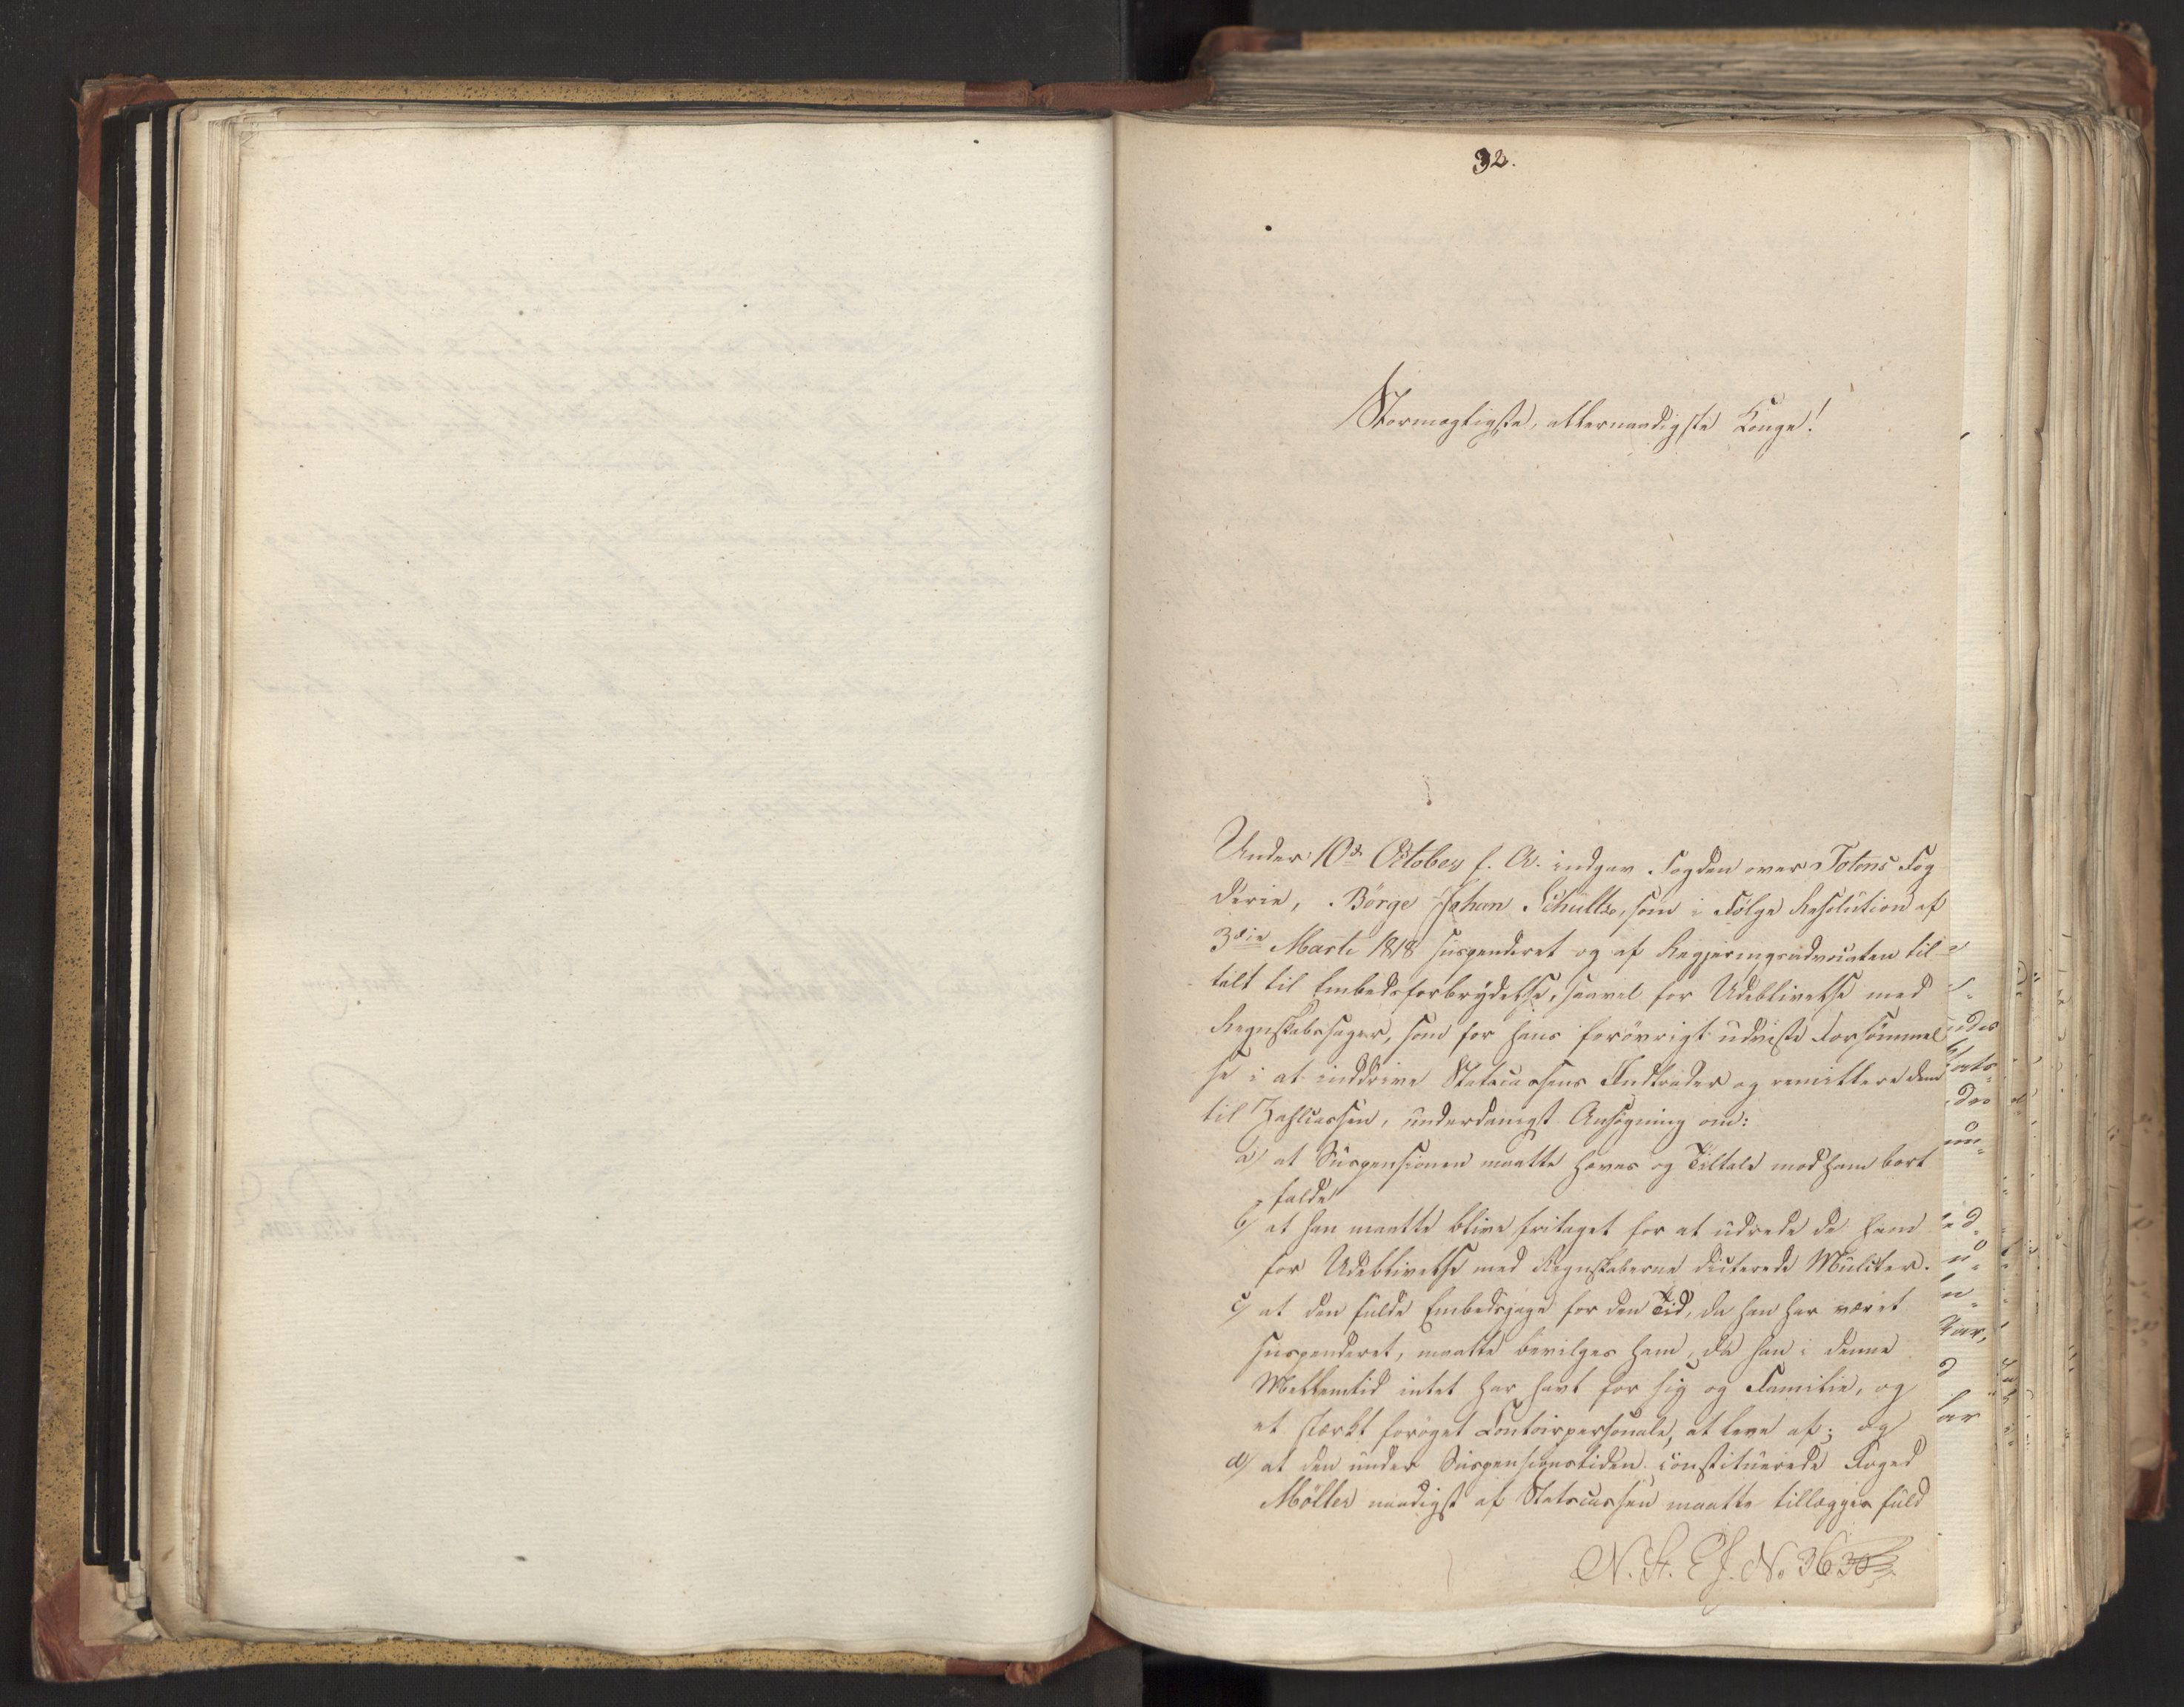 32.
Stormægtigste, allernaadigste Konge!
Under 10de October f. A. indgav Fogden over Totens Fog
derie, Børge Johan Schultz, som i Følge Resolution af
3die Marti 1818 suspenderet og af Regjeringsadvocaten til
talt til Embedsforbrydelse, saavel for Udeblivelse med
Regnskabssager, som for hans forövrigt udviste Forsömmel
se i at inddrive Statscassens Indtræder og remittere dem
til Zahlcassen, underdanigst Ansögning om:
a/ at Suspensionen maatte hæves og Tiltale mod ham bort
falde
b/ at han maatte blive fritaget for at udrede de ham
for Udeblivelse med Regnskaberne dicterede Mulcter.
c/ at den fulde Embedsgage for den Tid, da han har været
suspenderet, maatte bevilges ham, da han i denne
Mellemtid intet har havt for sig og Familie, og
et stærkt foröget Contoirpersonale, at leve af; og
d/ at den under Suspensionstiden constituerede Foged
Möller naadigst af Statscassen maatte tillægges fuld
N. St. E J. No 3630